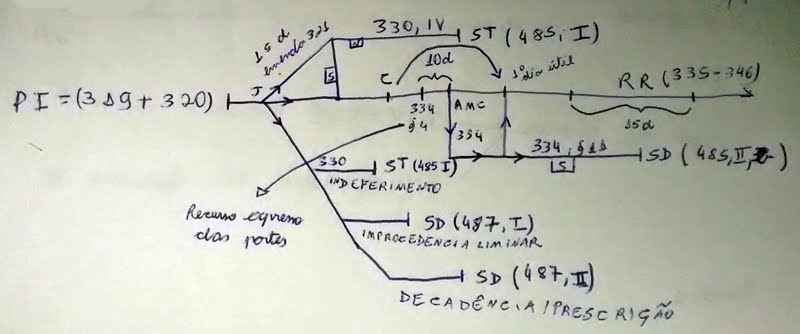 PI = (319 + 320)
J
15 d
emenda 321
S
N
330, IV
ST (485, I)
C
10d
334
§4
AMC
334
1º dia útil
RR (335-346)
15d
334, §11
S
SD (485, II,
330
ST (485 I)
INDEFERIMENTO
Recurso expresso
das partes
SD (487, I)
IMPROCEDENCIA LIMINAR
SD (487, II)
DECADÊNCIA/PRESCRIÇÃO